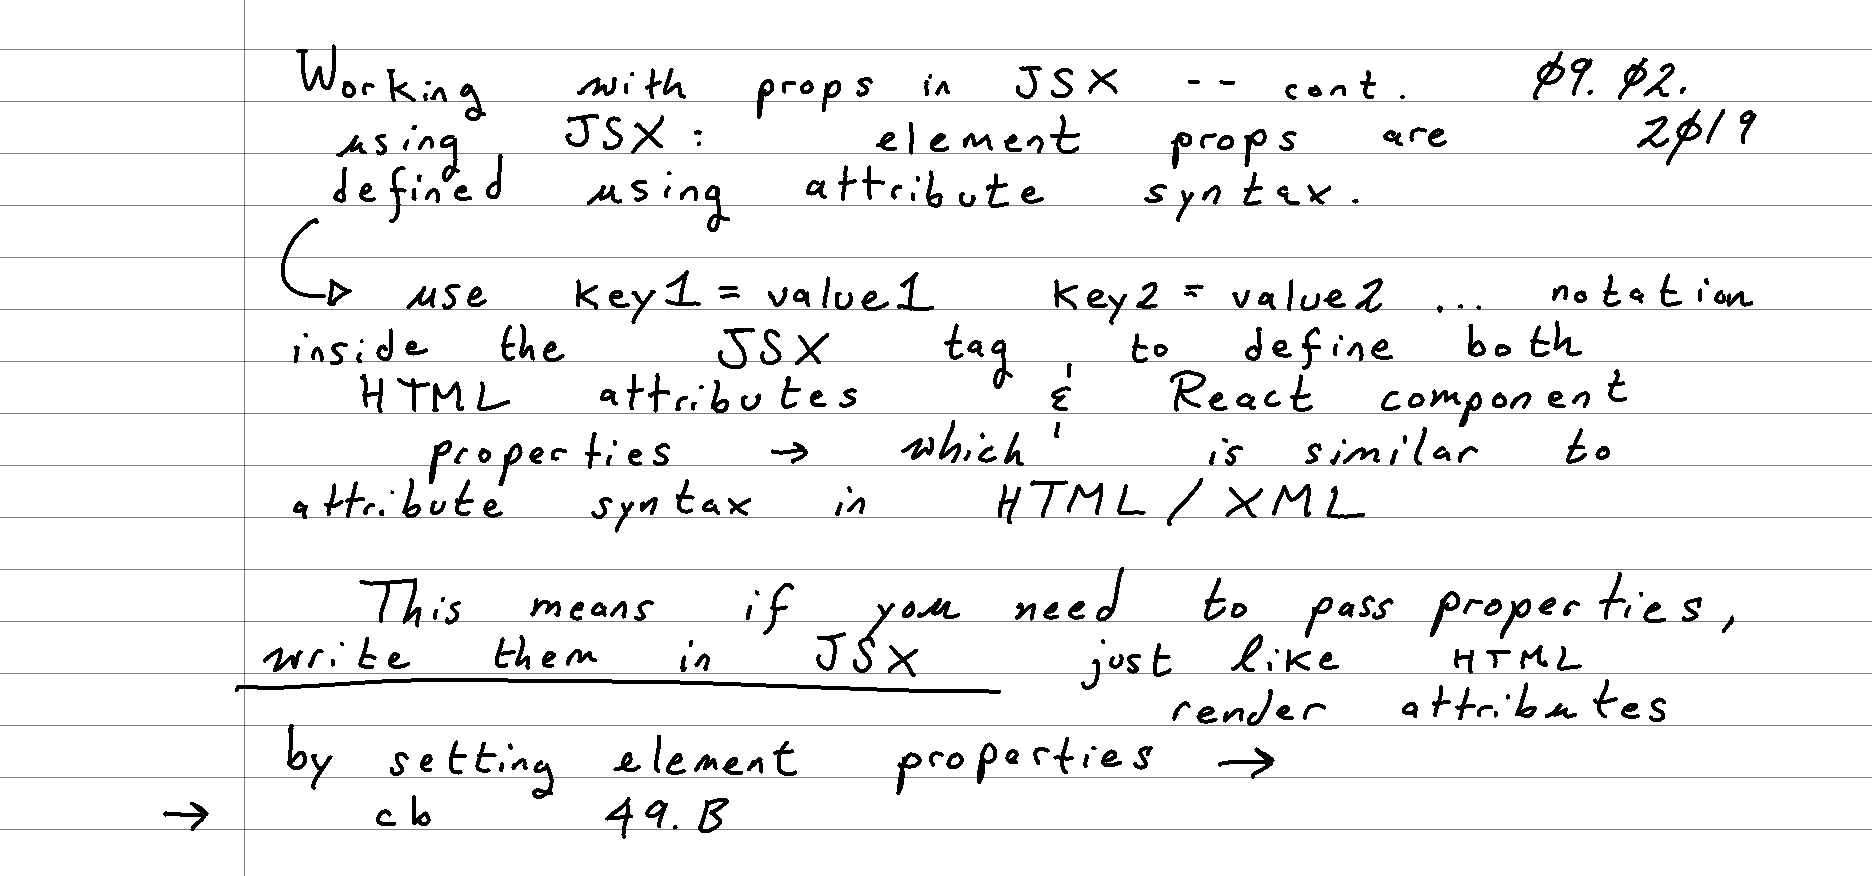 Working with props in JSX -- cont. Ø9. Ø2.
using JSX: element props are 2Ø19
defined using attribute syntax.
use key1 = value1 key2 = value2 ... notation
inside the JSX tag to define both
HTML attributes & React component
properties → which is similar to
attribute syntax in HTML / XML
This means if you need to pass properties,
write them in JSX just like HTML
render attributes
by setting element properties →
→ cb 49.B